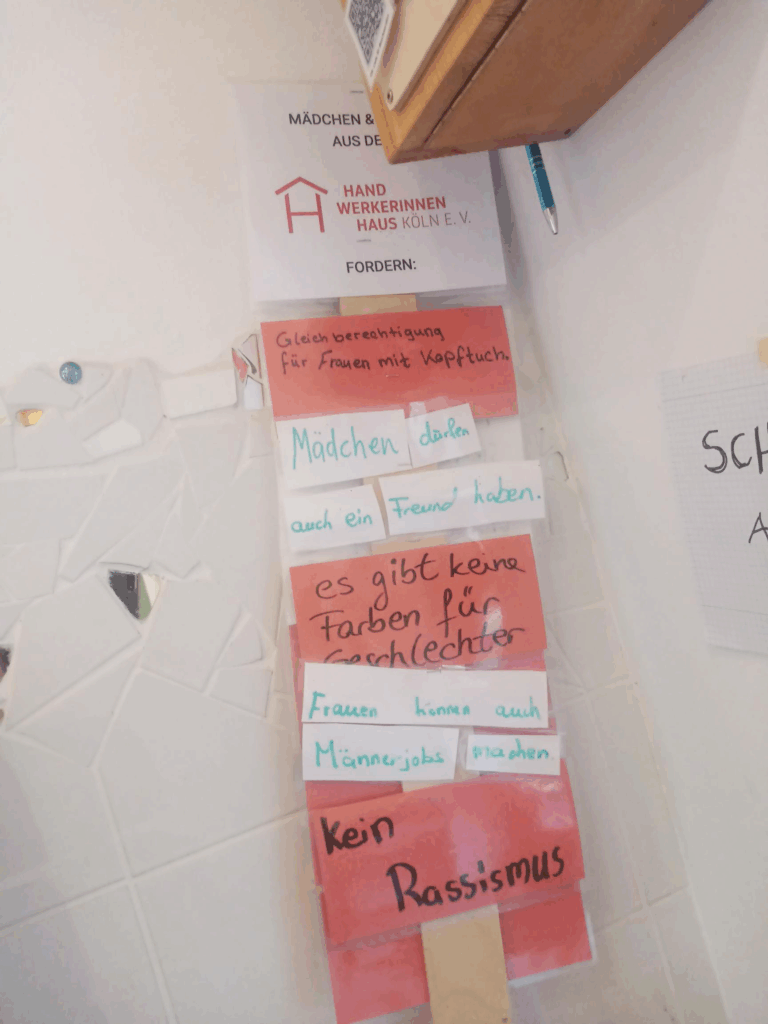 MÄDCHEN &
AUS DE
HAND
WERKERINNEN
HAUS KÖLN E. V.
FORDERN:
Gleichberechtigung
für Frauen mit Kopftuch.
Mädchen dürfen
auch ein Freund haben.
es gibt keine
Farben für
Geschlechter
Frauen können auch
Männerjobs machen
Kein
Rassismus
SCH
A